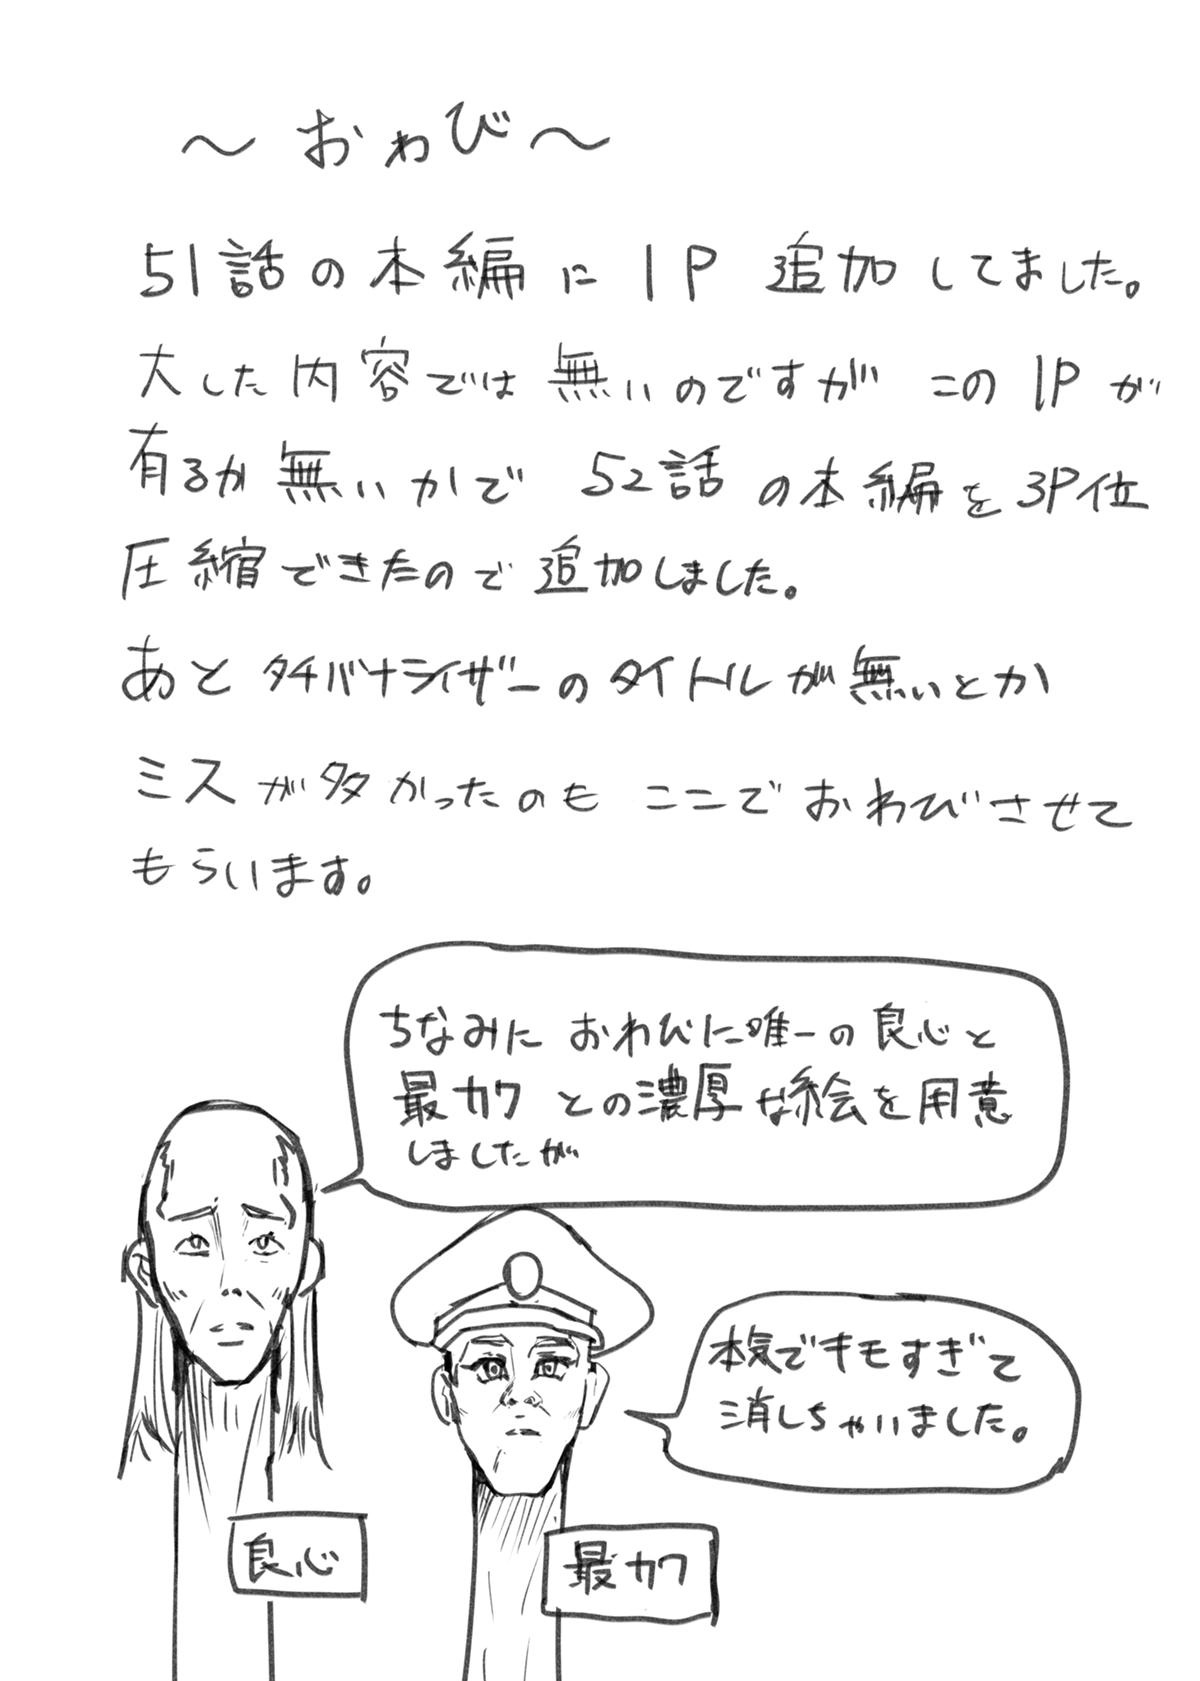 ～おわび～
51話の本編に1P追加してました。
大した内容では無いのですがこの1Pが
有るか無いかで52話の本編を3P位
圧縮できたので追加しました。
あとタチバナライザーのタイトルが無いとか
ミスが多かったのもここでおわびさせて
もらいます。
ちなみにおわびに唯一の良心と
最カワとの濃厚な絵を用意
しましたが
本気でキモすぎて
消しちゃいました。
良心
最カワ